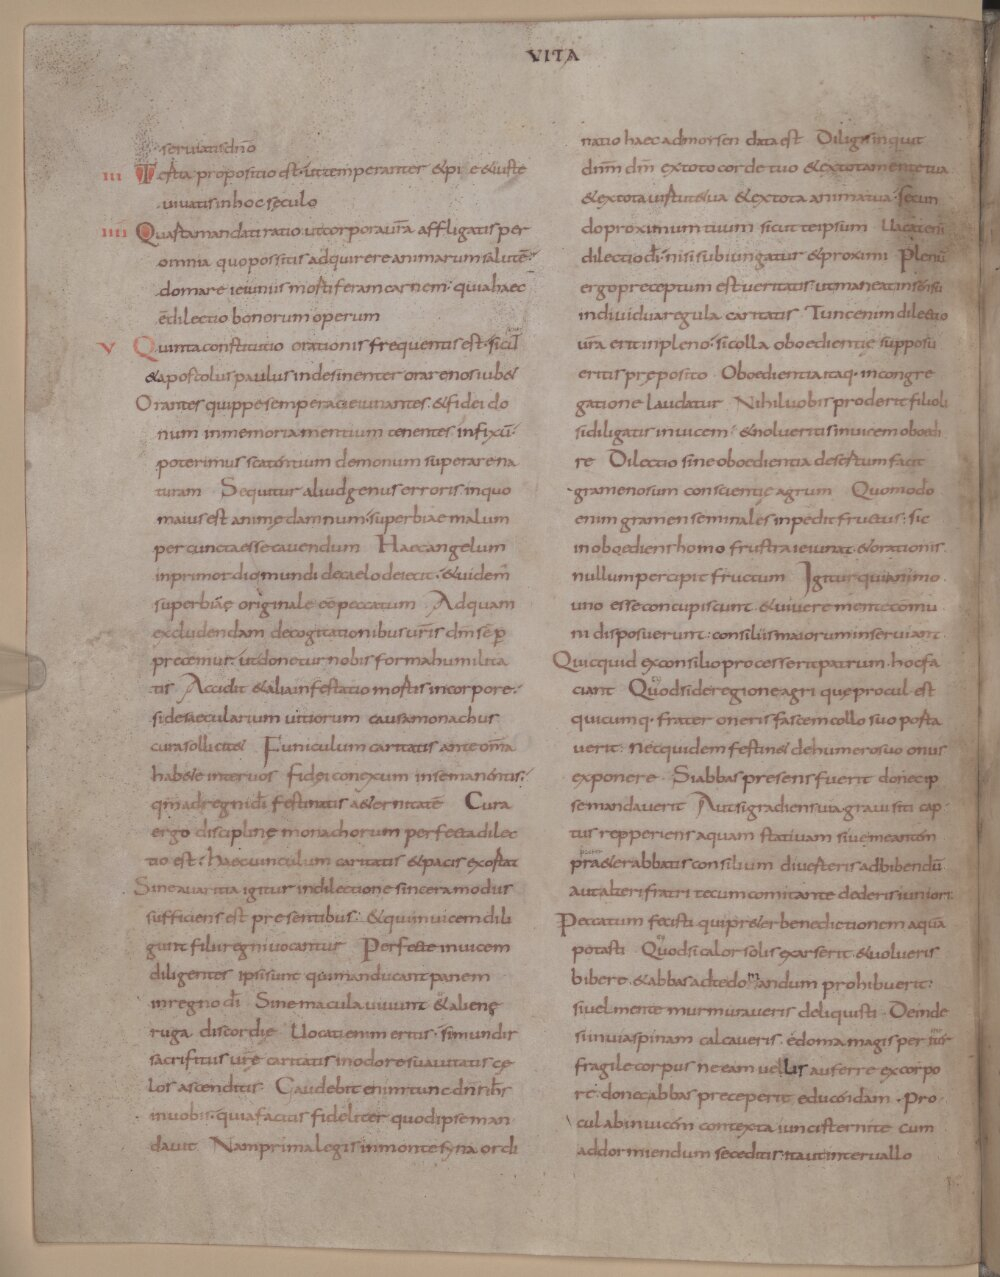 VITA
seruiatis dnō
III Tertia propositio est. ut temperanter & piae & iuste
uiuatis in hoc seculo
IIII Quarta mandati ratio. ut corpora ur̄a affligatis per
omnia quo possitis adquirere animarum salutē.
domare ieiuniis mortiferam carnem. quia haec
ē dilectio bonorum operum
V Quinta constitutio orationis frequentis est. sicut
& apostolus paulus indesinenter orare nos iub&
Orantes quippe semper ac ieiunantes. & fidei do
num in memoria mentium tenentes infixū.
poterimus scatentium demonum superare na
turam Sequitur aliud genus erroris. in quo
maius est animę damnum. superbiae malum
per cuncta esse cauendum Haec angelum
in primordio mundi de caelo deiecit. & uidem̄
superbiāę originale eē peccatum Ad quam
excludendam de cogitationibus ur̄is dm̄ sēp
precemur. ut donetur nobis forma humilita
tis Accidit & alia infestatio mortis in corpore.
si de saecularium uitiorum causa monachus
cura sollicitet Funiculum caritatis ante om̄a
hab&e inter uos fidei conexum in se manentis.
qm̄ ad regni dī festinatis a&ernitatē Cura
ergo disciplinę monachorum perfecta dilec
tio est. haec uinculum caritatis & pacis exortat
Sine auaritia igitur in dilectione sincera modus
sufficiens est presentibus. & qui inuicem dili
gunt filii regni uocantur Perfecte inuicem
diligentes ipsi sunt qui manducant panem
in regno dī Sine macula uiuunt & alienę
ruga discordię Uocati enim eritis. si mundis
sacrificiis uitę caritatis in odore suauitatis cę
los ascenditis Gaudebit enim tunc dn̄s ih̄s
in uobis. quia facitis fideliter quod ipse man
dauit Nam prima legis in monte syna ordi
natio haec ad morsen data est Dilige inquit
dnm̄ dm̄ ex toto corde tuo & ex tota mente tua
& ex tota uirtute tua & ex tota anima tua. secun
do proximum tuum sicut te ipsum Uacat enī
dilectio dī. nisi subiungatur & proximi Plenū
ergo preceptum est ueritatis. ut maneat in sensu
indiuidua regula caritatis Tunc enim dilectio
ur̄a erit in pleno. si colla oboedientię supposu
eritis preposito Oboedientia itaq. in congre
gatione laudatur Nihil uobis proderit filioli
si diligatis inuicem. & nolueritis inuicem oboedi
re Dilectio sine oboedientia desertum facit
gramenosum conscientię agrum Quomodo
enim gramen seminales inpedit fructus. sic
inoboediens homo frustra ieiunat. & orationis
nullum percipit fructum Igitur qui animo
uno esse concupiscunt & uiuere mente commu
ni disposuerunt. consiliis maiorum inseruiant
Quicquid ex consilio processerit patrum. hoc fa
ciant Quod si de regione agri que procul est
quicumq. frater oneris fascem collo suo porta
uerit. nec quidem festinet de humero suo onus
exponere Si abbas presens fuerit donec ip
se mandauerit Aut si gradiens uia. graui siti cap
tus repperiens aquam statiuam siue meantem
praeter abbatis consilium diuerteris ad bibendū
aut alteri fratri tecum comitante dederis iuniori.
Peccatum fecisti. qui praeter benedictionem aquā
potasti Quod si calor solis exarserit. & uolueris
bibere. & abbas ad te domandum prohibuerit.
si uel mente murmuraueris deliquisti Deinde
si in uia spinam calcaueris. edoma magis per
fragile corpus ne eam uellis auferre ex corpo
re. donec abbas preceperit educendam Pro
cul ab inuicem contexta iunc sternite cum
ad dormiendum seceditis. ita ut interuallo